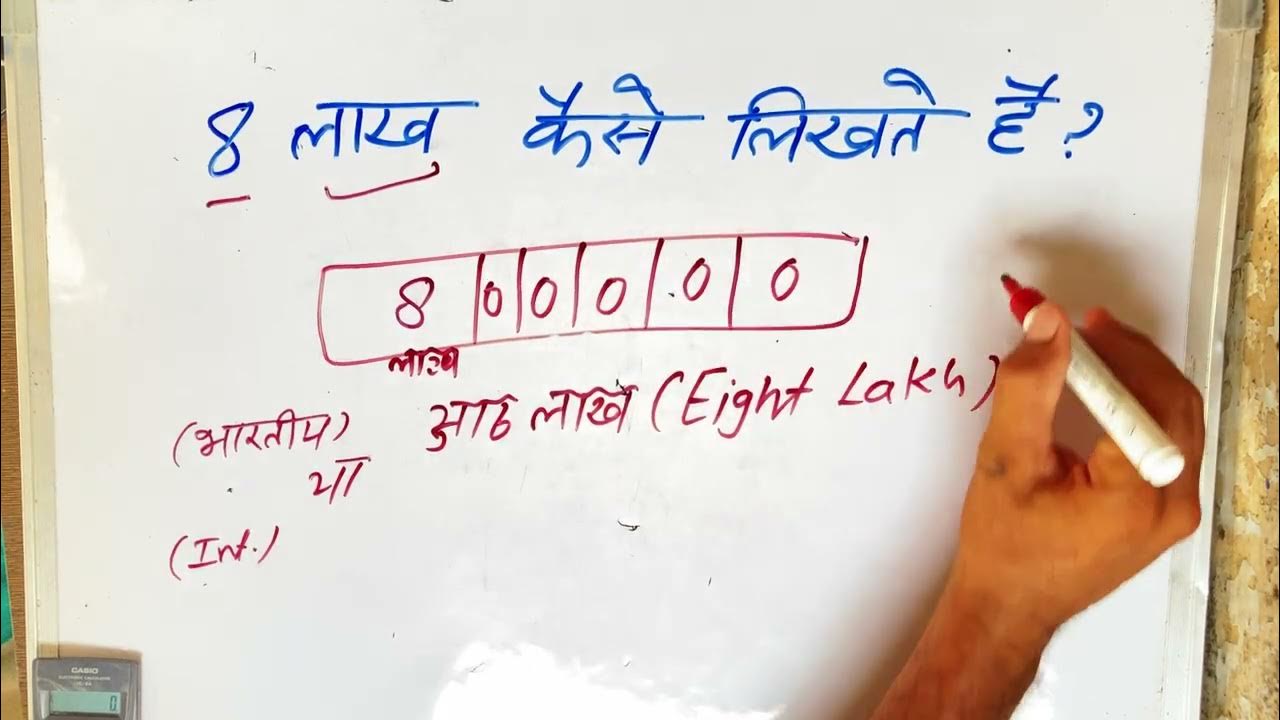 8 लाख कैसे लिखते है?
8 0 0 0 0 0
लाख
(भारतीय) आठ लाख (Eight Lakh)
या
(Int.)
CASIO
0